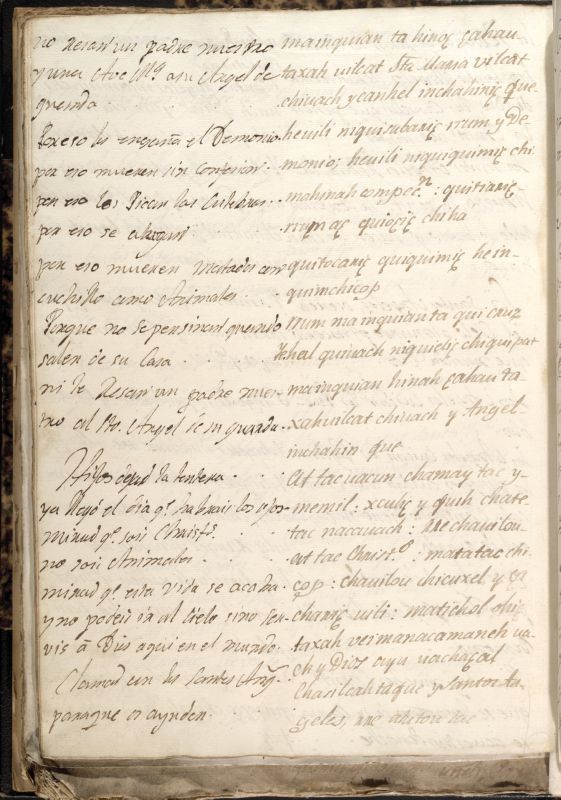 no Resan un padre nuestro
y una Ave Mª a su Angel de
guarda
Por eso los engaña el Demonio.
por eso mueren sin Confesion.
por eso los Pican las Culebras.
por eso se ahogan
por eso mueren Matados con
cuchillo como Animales
Porque no se persinan quando
salen de su Casa
ni le Resan un padre nues-
tro al Sto. Angel de su guarda.
Hijos dejad la tonteria
ya llegó el dia q. habrais los ojos.
mirad q. sois Christs.
no sois Animales
mirad q. esta vida se acaba.
y no podeis ir al Cielo sino ser-
vis â Dios aqui en el mundo.
Clamad con los Santos Ang.
para que os ayuden.
mainquian ta hinoc cahau-
taxah uilcat Sta Maria vilcat
chiuach y canhel inchahinic que.
heuili niquisubanic rrum y De-
monio; heuili niquiquimic chi
mahinah compec.n : quitianic
rrum ac quiocic chi ha
quitocanic quiquimic he in-
quimchicop
rrum mainquian ta qui cruz
khal quiuach niquielic chiquipat
mainquian hinah cahau ta-
xahuilcat chiuach y Angel
inchahin que
At tac uacun chamay tac y-
memil : xculic y quih chate
tac nacauach : tre chauilou
at tac Christ.o : matatac chi-
cop : chauilou chicuxel y ca
chanic uili : matichol ohic
taxah vei manacamaneh ua-
ch y Dios ayu uachacal
Chasilcahtaque y Santos An-
geles, me ahtou tac